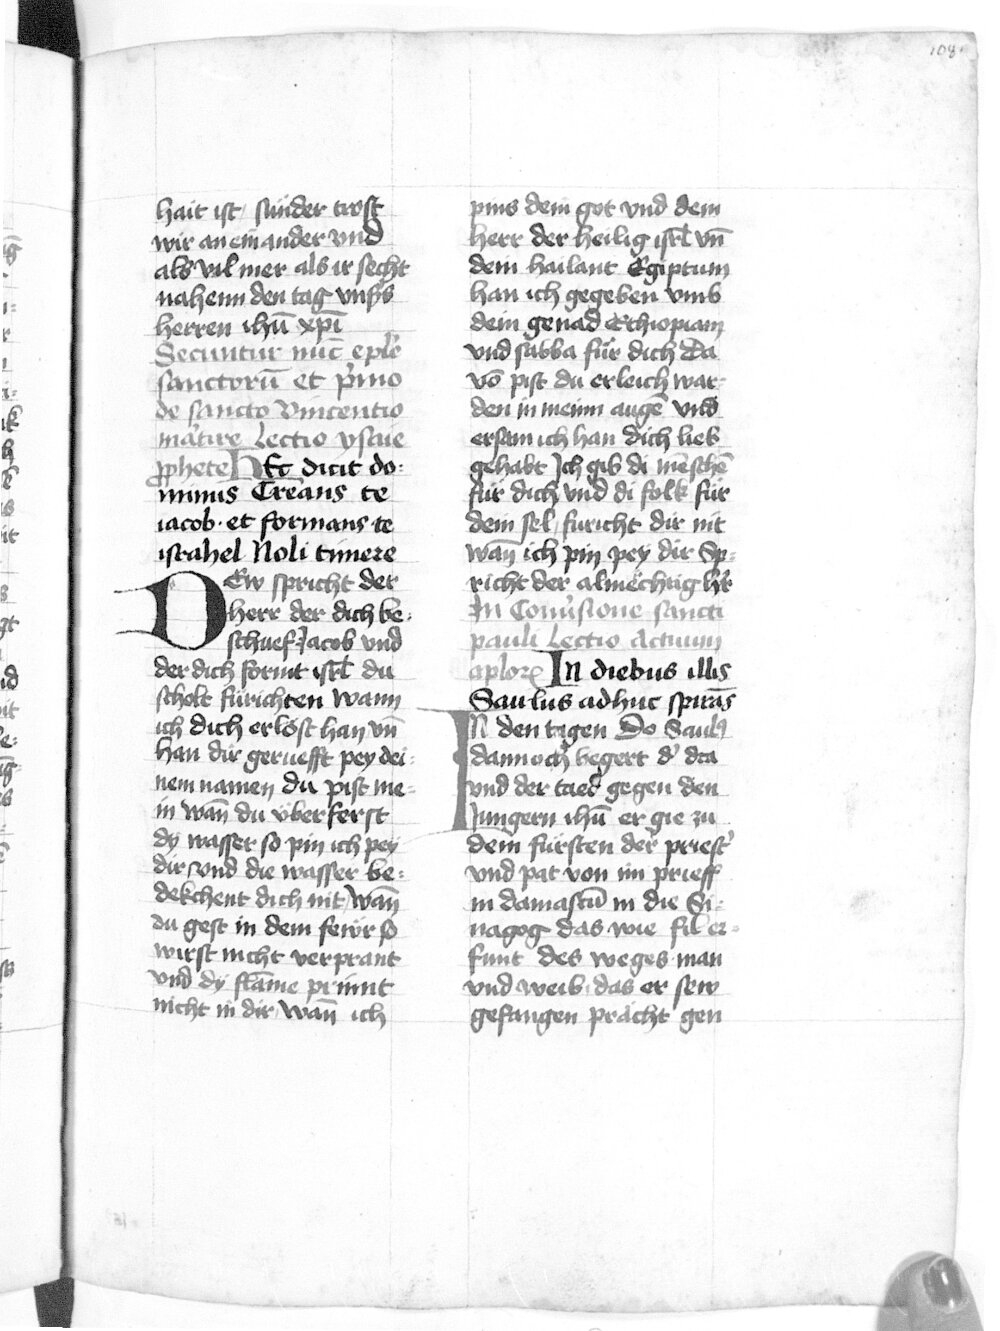 108
hait ist / sunder trost
wir an einander vnd
als vil mer als ir secht
nahenn den tag vnsers
herren ihū xp̄i
Secuntur nūc eplē
sanctorū et p̄mo
de sancto Vincentio
mārtire Lectio ysaie
prophete HEc dicit do:
minus Creans te
iacob · et formans te
israhel Noli timere
DEw spricht der
herr der dich be:
schuef Jacob vnd
der dich formt isrl̄ du
scholt fürichten wann
ich dich erlöst han vn̄
han dir geruefft pey dei:
nem namen du pist me=
in wan̄ du vberferst
dy wasser so pin ich pey
dir vnd die wasser be:
dekchent dich nit / wan̄
du gest in dem fewr so
wirst nicht verprant
vnd dy flāme prinnt
nicht in dir / wan̄ ich
pins dein got vnd dein
herr der heilig isrl̄ vn̄
dein hailant Egiptum
han ich gegeben vmb
dein genad Ethiopiam
vnd sabba für dich Da
vō pist du erleich wor=
den in meinn augē vnd
ersam ich han dich lieb
gehabt Ich gib di mēschē
für dich vnd di folk für
dein sel / füricht dir nit
wan̄ ich pin pey dir Sp:
richt der almëchtig h̄r
In Conūsione sancti
pauli Lectio Actuum
aplor̄ In diebus illis
Saulus adhuc spirās
IN den tagen Do Saulꝰ
dannoch begert d' dra
vnd der taed gegen den
Jungern ihū er gie zu
dem fürsten der priest'
vnd pat von im prieff
in damascū in die Si:
nagog das wie fil er=
funt des weges man
vnd weib · das er sew
gefangen prächt gen